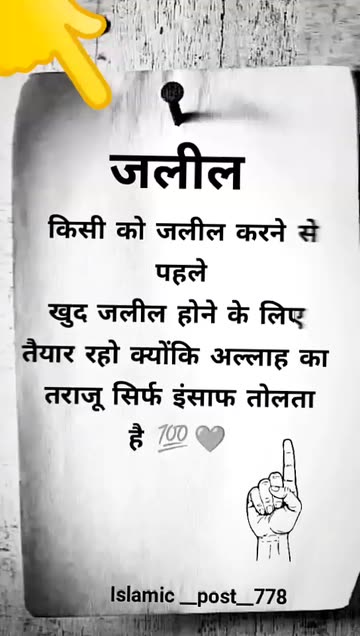 जलील
किसी को जलील करने से
पहले
खुद जलील होने के लिए
तैयार रहो क्योंकि अल्लाह का
तराजू सिर्फ इंसाफ तोलता
है 💯🩶
Islamic__post__778